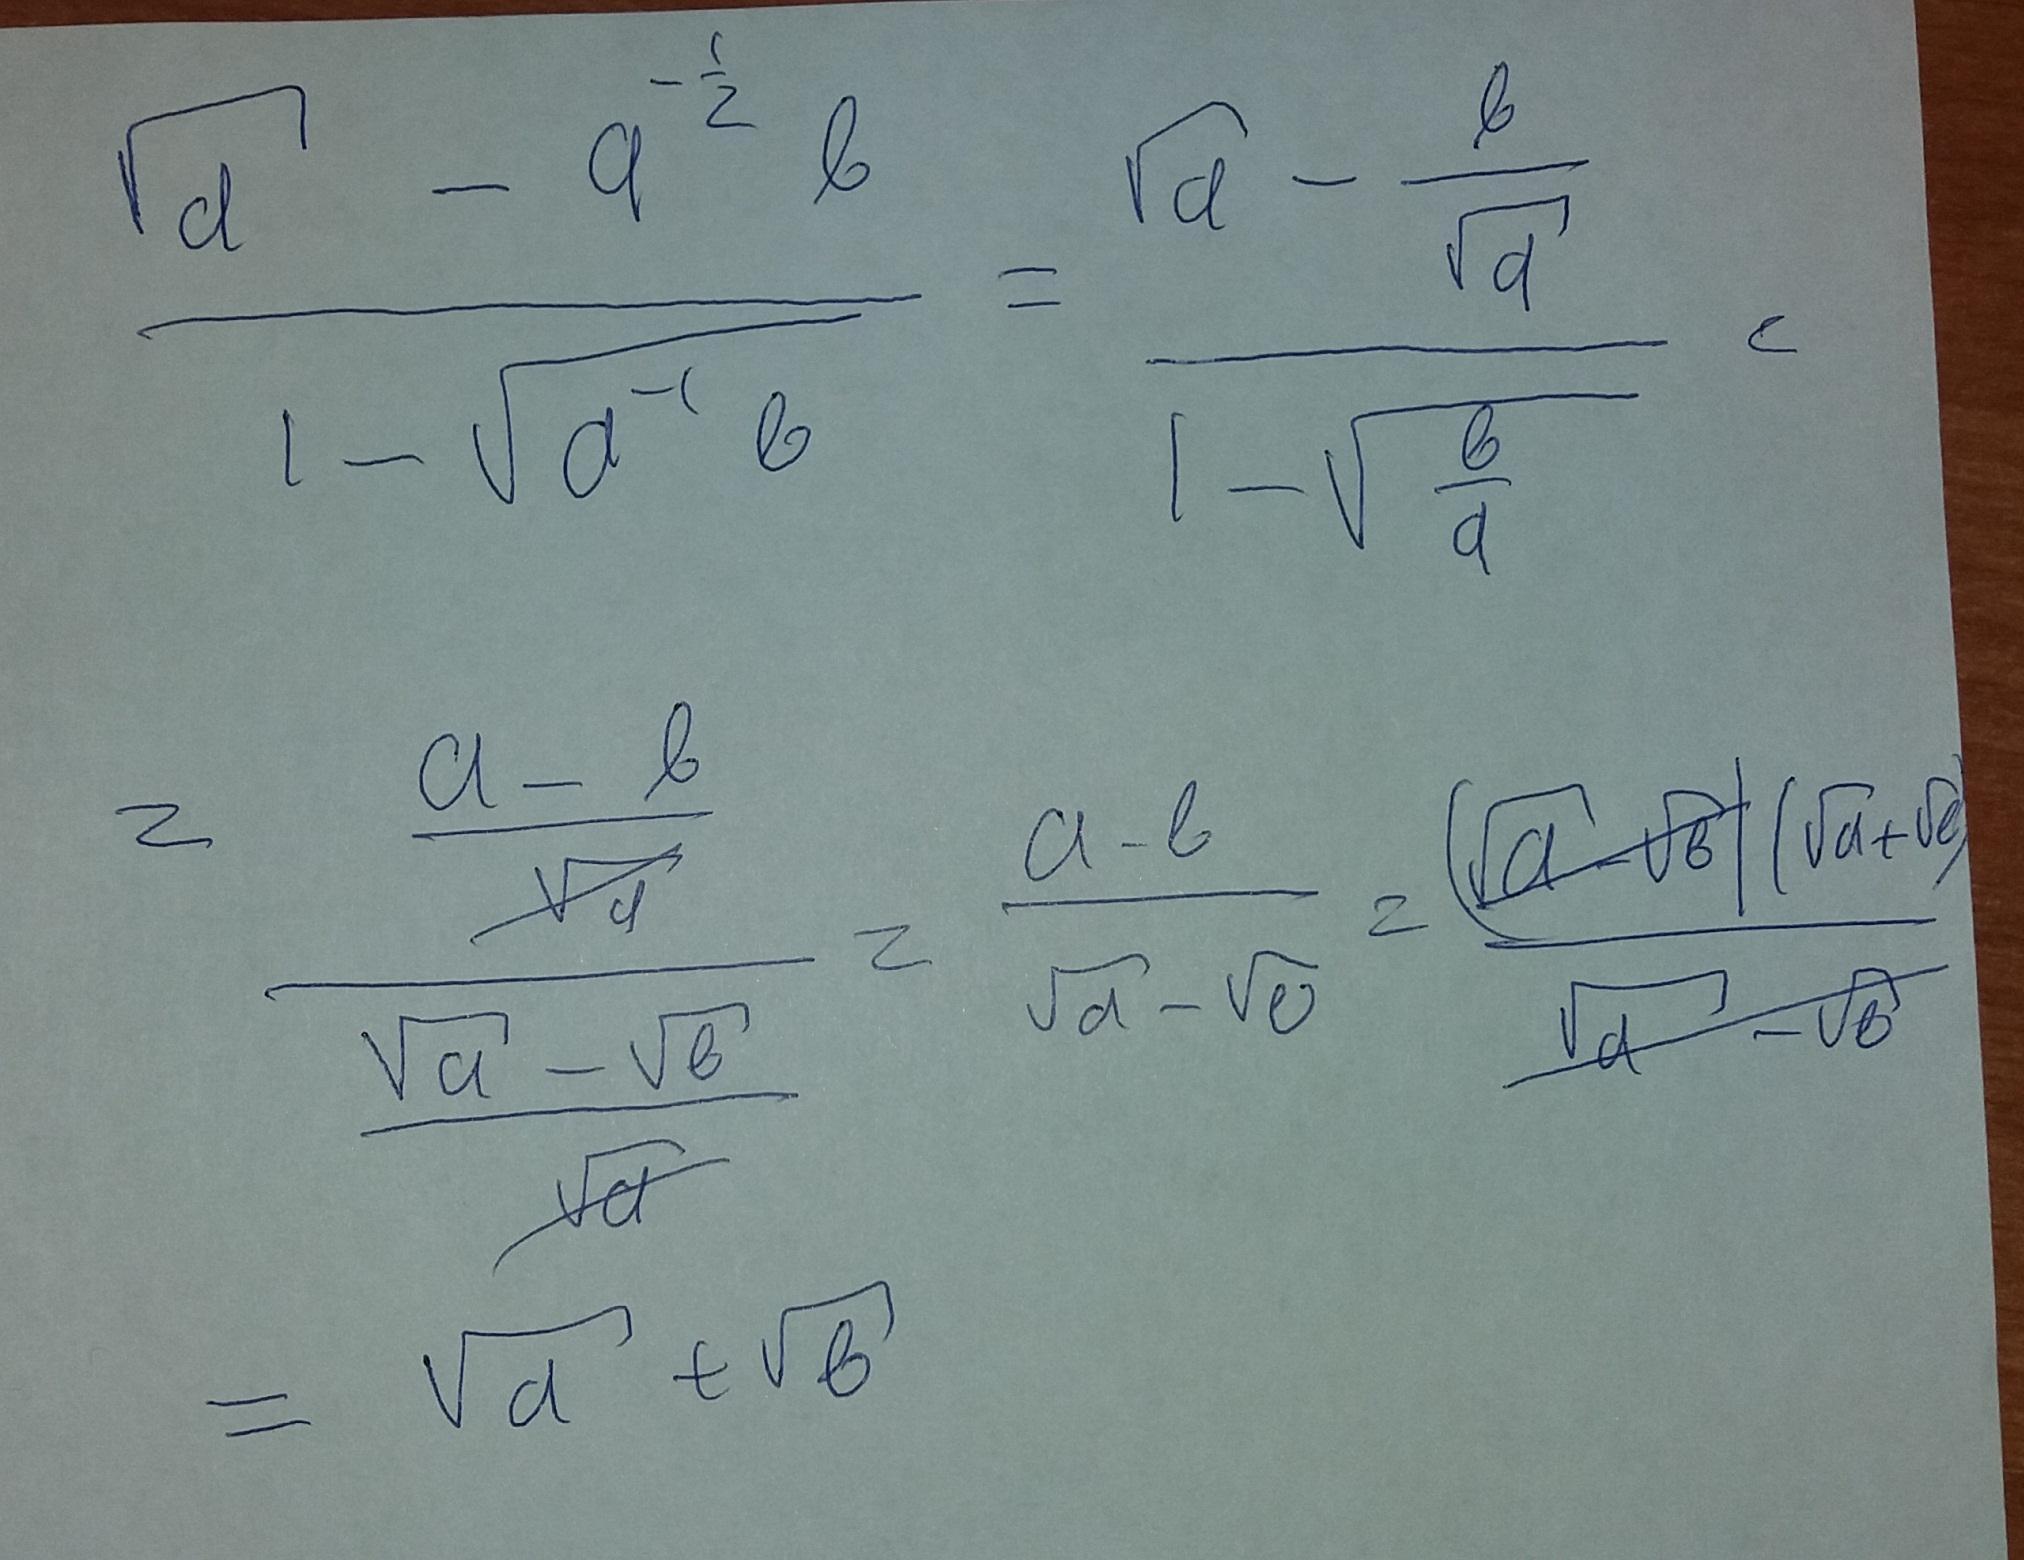 (√a - a^(-1/2) b) / (1 - √(a^(-1) b)) = (√a - b/√a) / (1 - √(b/a)) =
= ((a - b)/√a) / ((√a - √b)/√a) = (a - b) / (√a - √b) = ((√a - √b)(√a + √b)) / (√a - √b)
= √a + √b